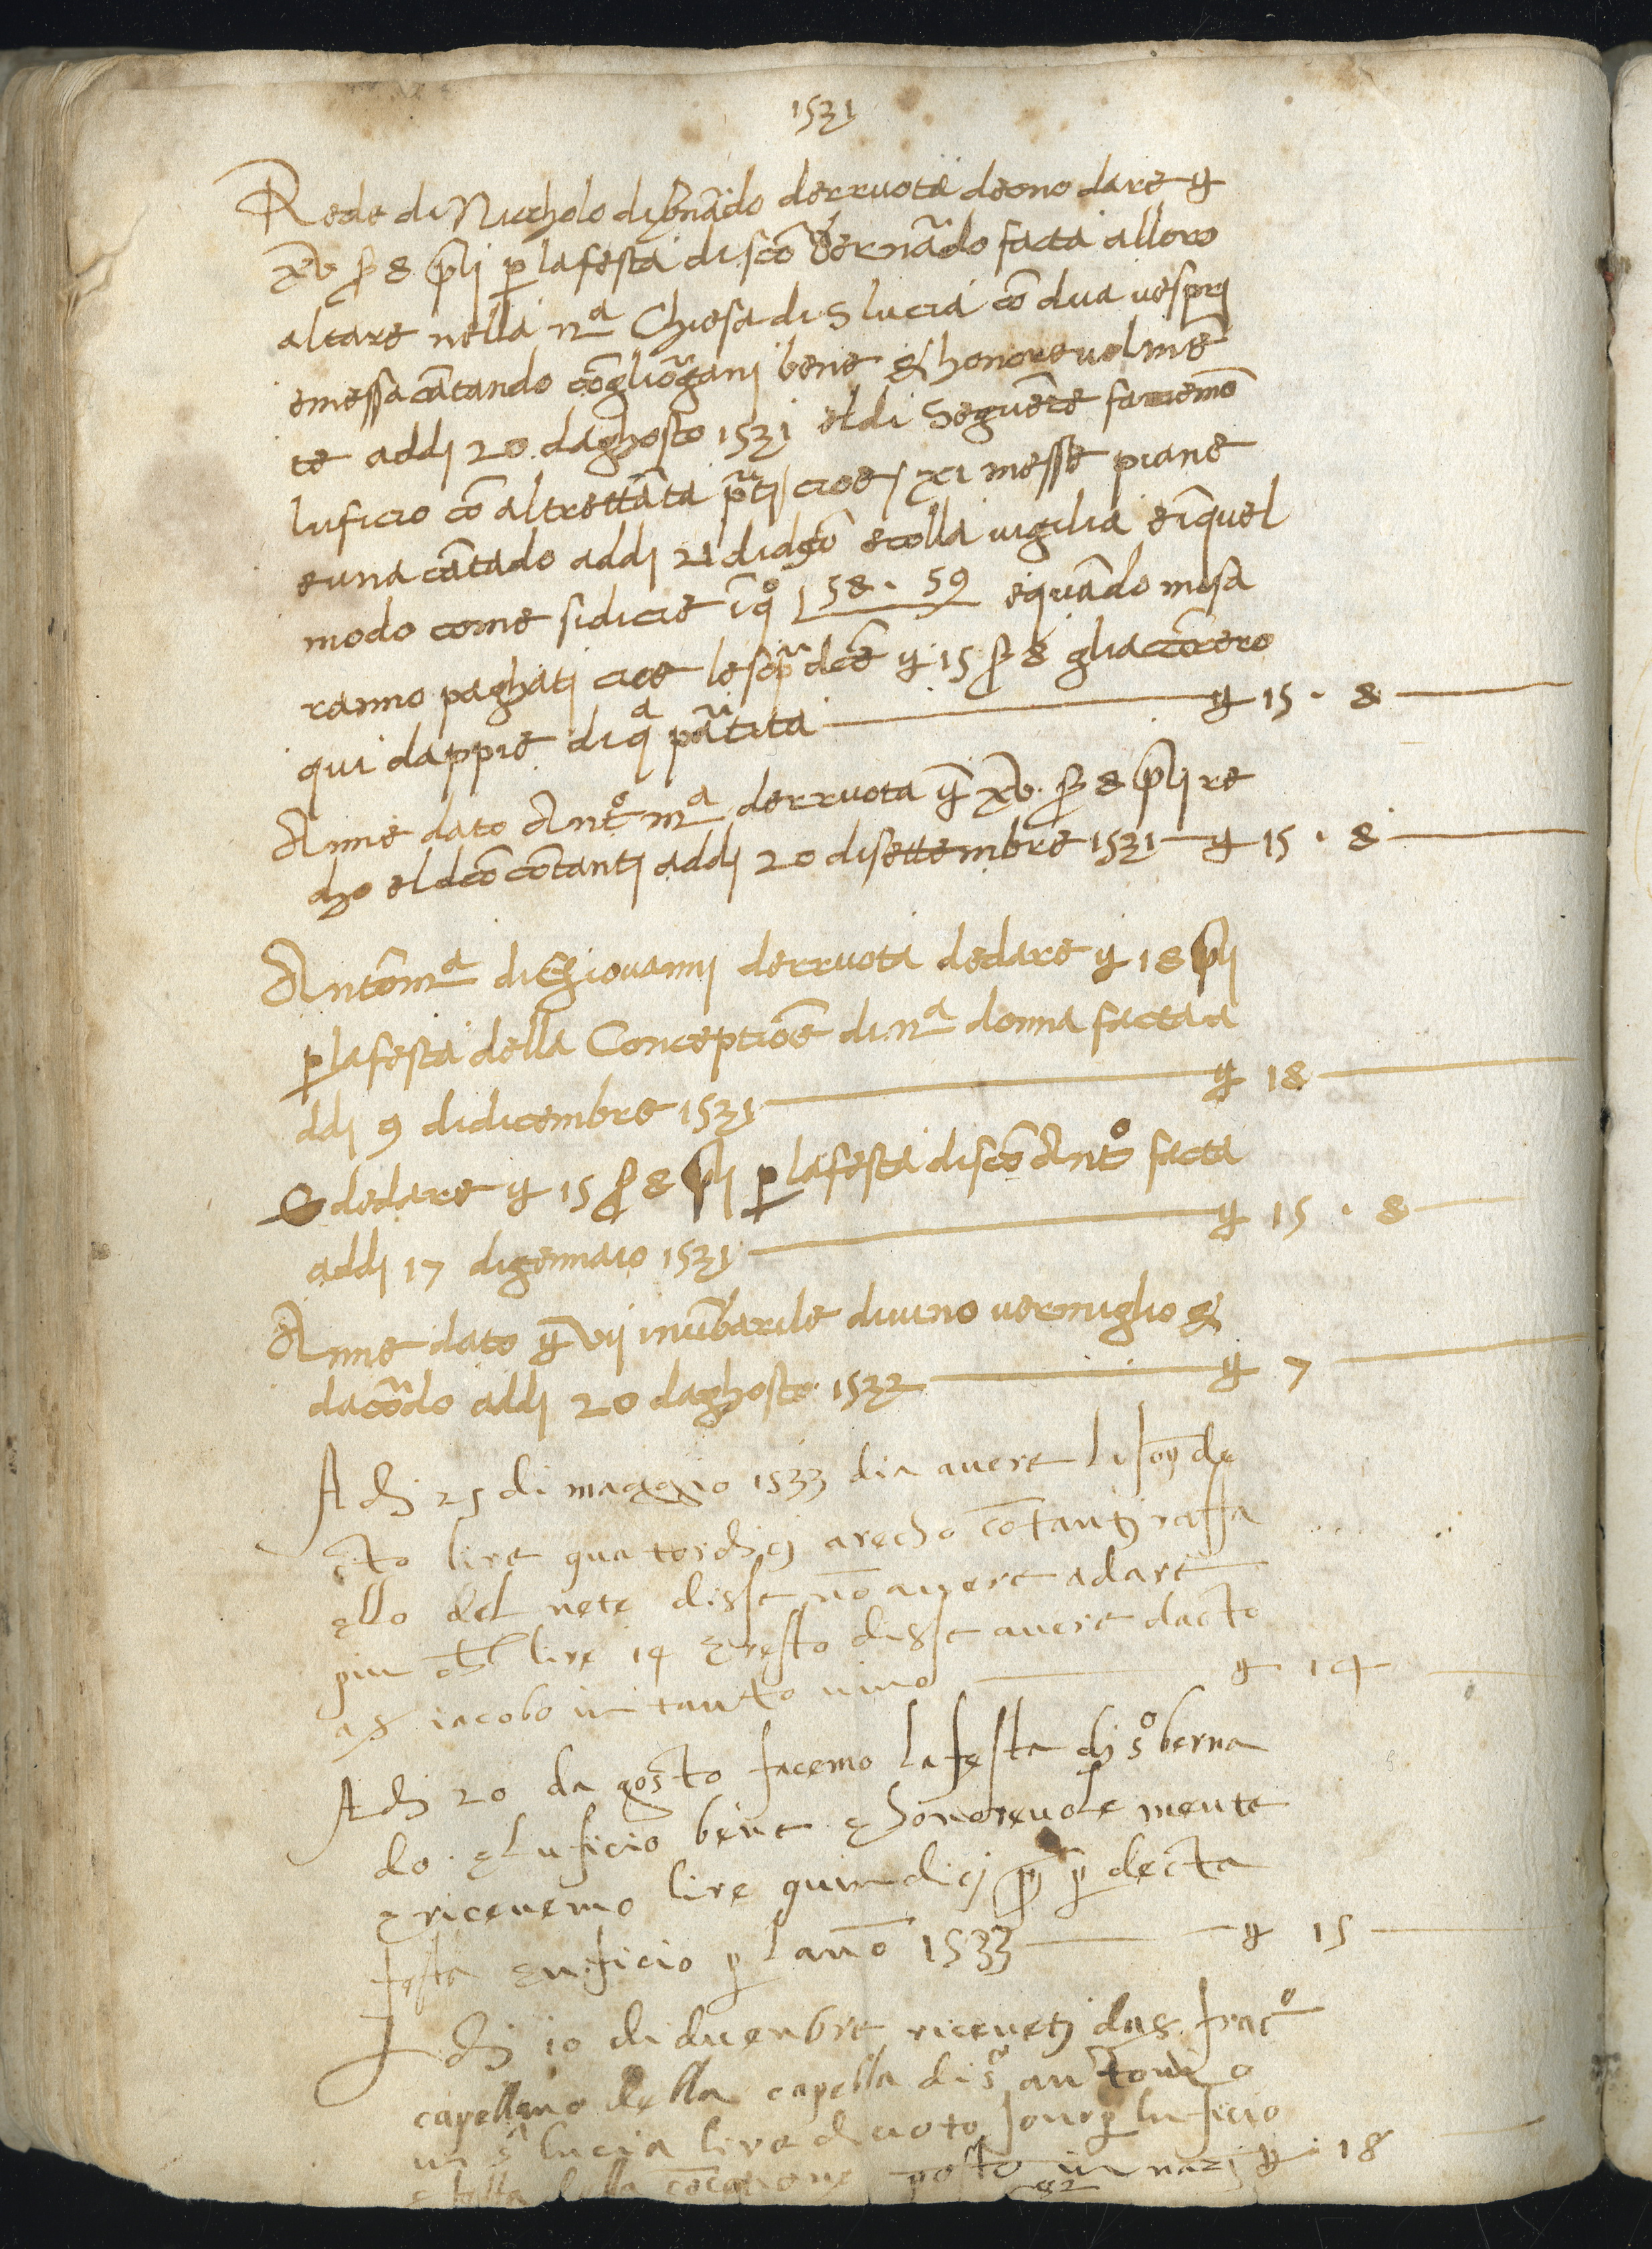 1531
Rede di Niccholo di bnãdo derruota deono dare ₤
xv ß 8 p̃li p la festa di scõ bernãdo facta alloro
altare nella nrᵃ Chiesa di S lucia cõ dua uespri
e messa cãtando cõ gliorgani bene & honoreuolmẽ
te addi 20 daghosto 1531 el di seguẽte facemo
luficio cõ altrettãta prti cioe xi messe piane
e una cãtado addi 21 didcto e colla uigilia e ĩ quel
modo come si dicie ĩ qº 58 · 59 e quãdo mesa
ranno paghati cioe le sopra dcẽ ₤ 15 ß 8 gliaccõrero
qui dappie di qᵃ partita ₤ 15 · 8
Anne dato Antº mᵃ derruota ₤ xv ß 8 p̃li re
cho el dcõ cõtanti addi 20 di settembre 1531 ₤ 15 · 8
Antõmᵃ di Giouanni derruota de dare ₤ 18 p̃li
p la festa della Conceptiõe di nrᵃ donna facta a
ddi 9 di dicembre 1531 ₤ 18
E de dare ₤ 15 ß 8 p̃li p la festa di scõ Antº facta
addi 17 di gennaio 1531 ₤ 15 · 8
Anne dato ₤ vij in ũ barile di uino uermiglio &
dacõrdo addi 20 daghosto 1532 ₤ 7
A di 25 di maggio 1533 dia auere
cto lire quatordici arecho cõtanti raffa
ello del nete disse nõ auere a dare
piu lire 14 e resto disse auere dacto
a S iacobo in tanto uino ₤ 14
A di 20 da gosto facemo la festa di sº berna
do e luficio bene e honoreuole mente
e riceuemo lire quindici p decta
festa e uficio p lanõ 1533 ₤ 15
A di 10 di dicenbre riceueti da S fracº
capellano della capella di sº antonio
in sᵃ lucia lire diciotto sono p luficio
e festa della cõcetione posto in ₤ 18